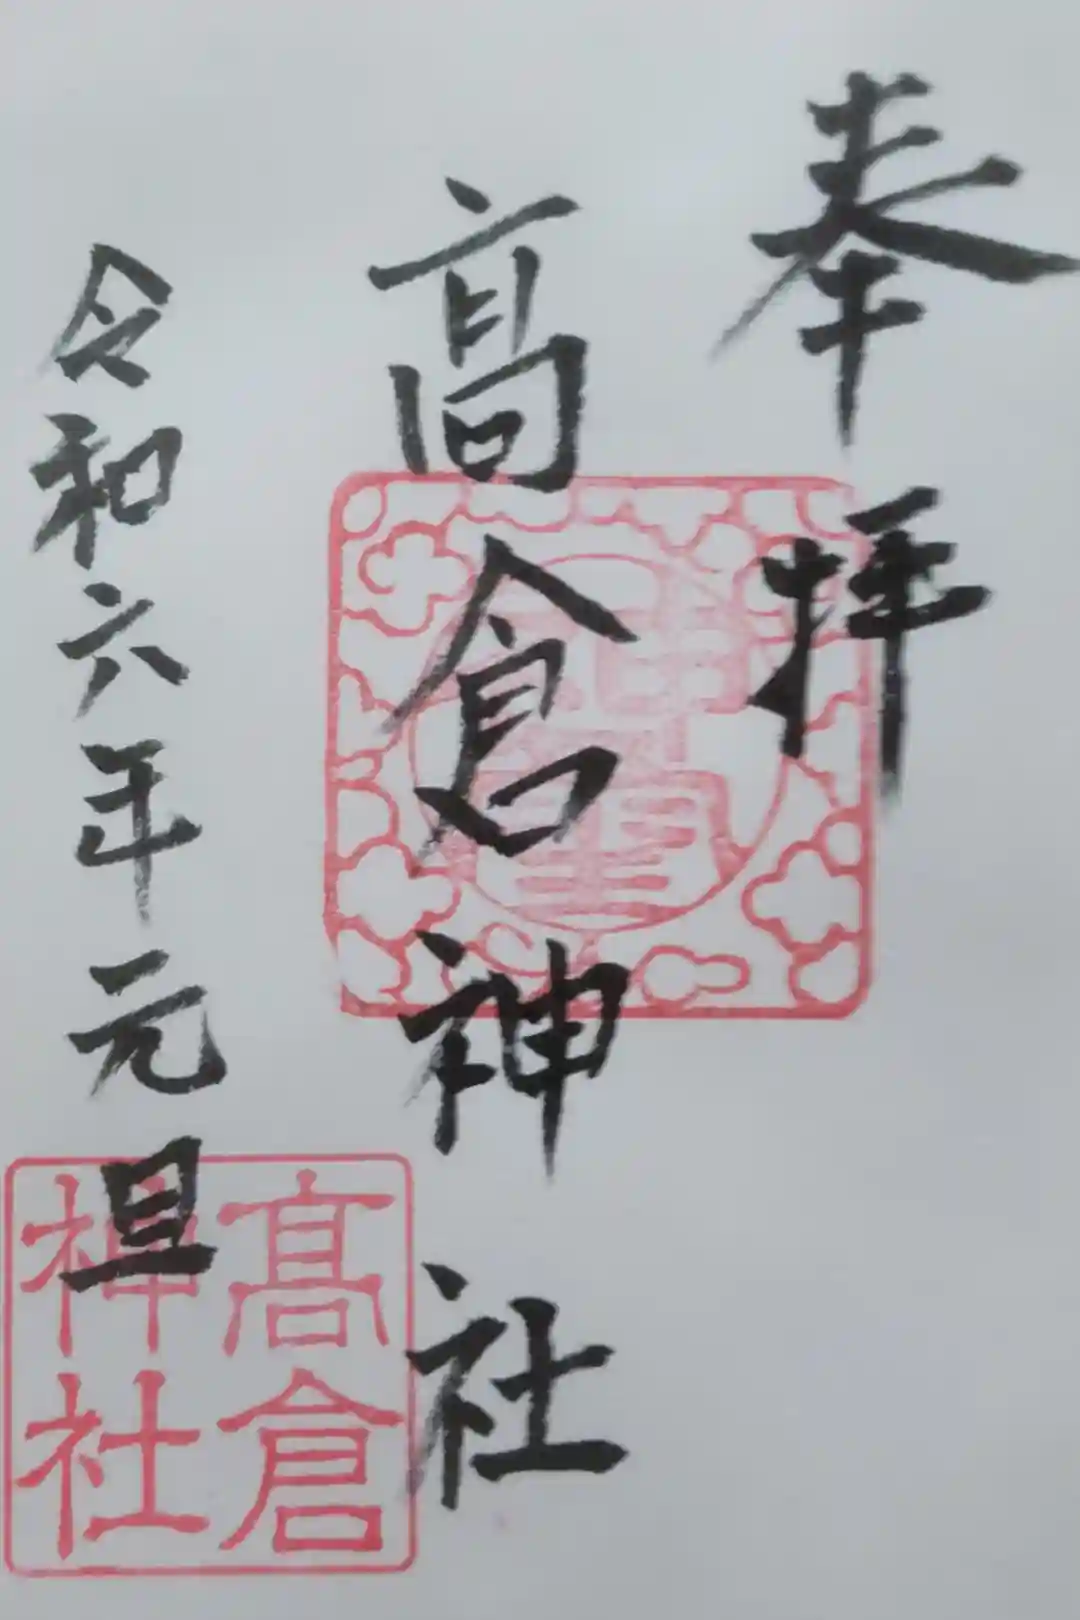 奉拝
髙倉神社
令和六年元旦
髙倉
神社